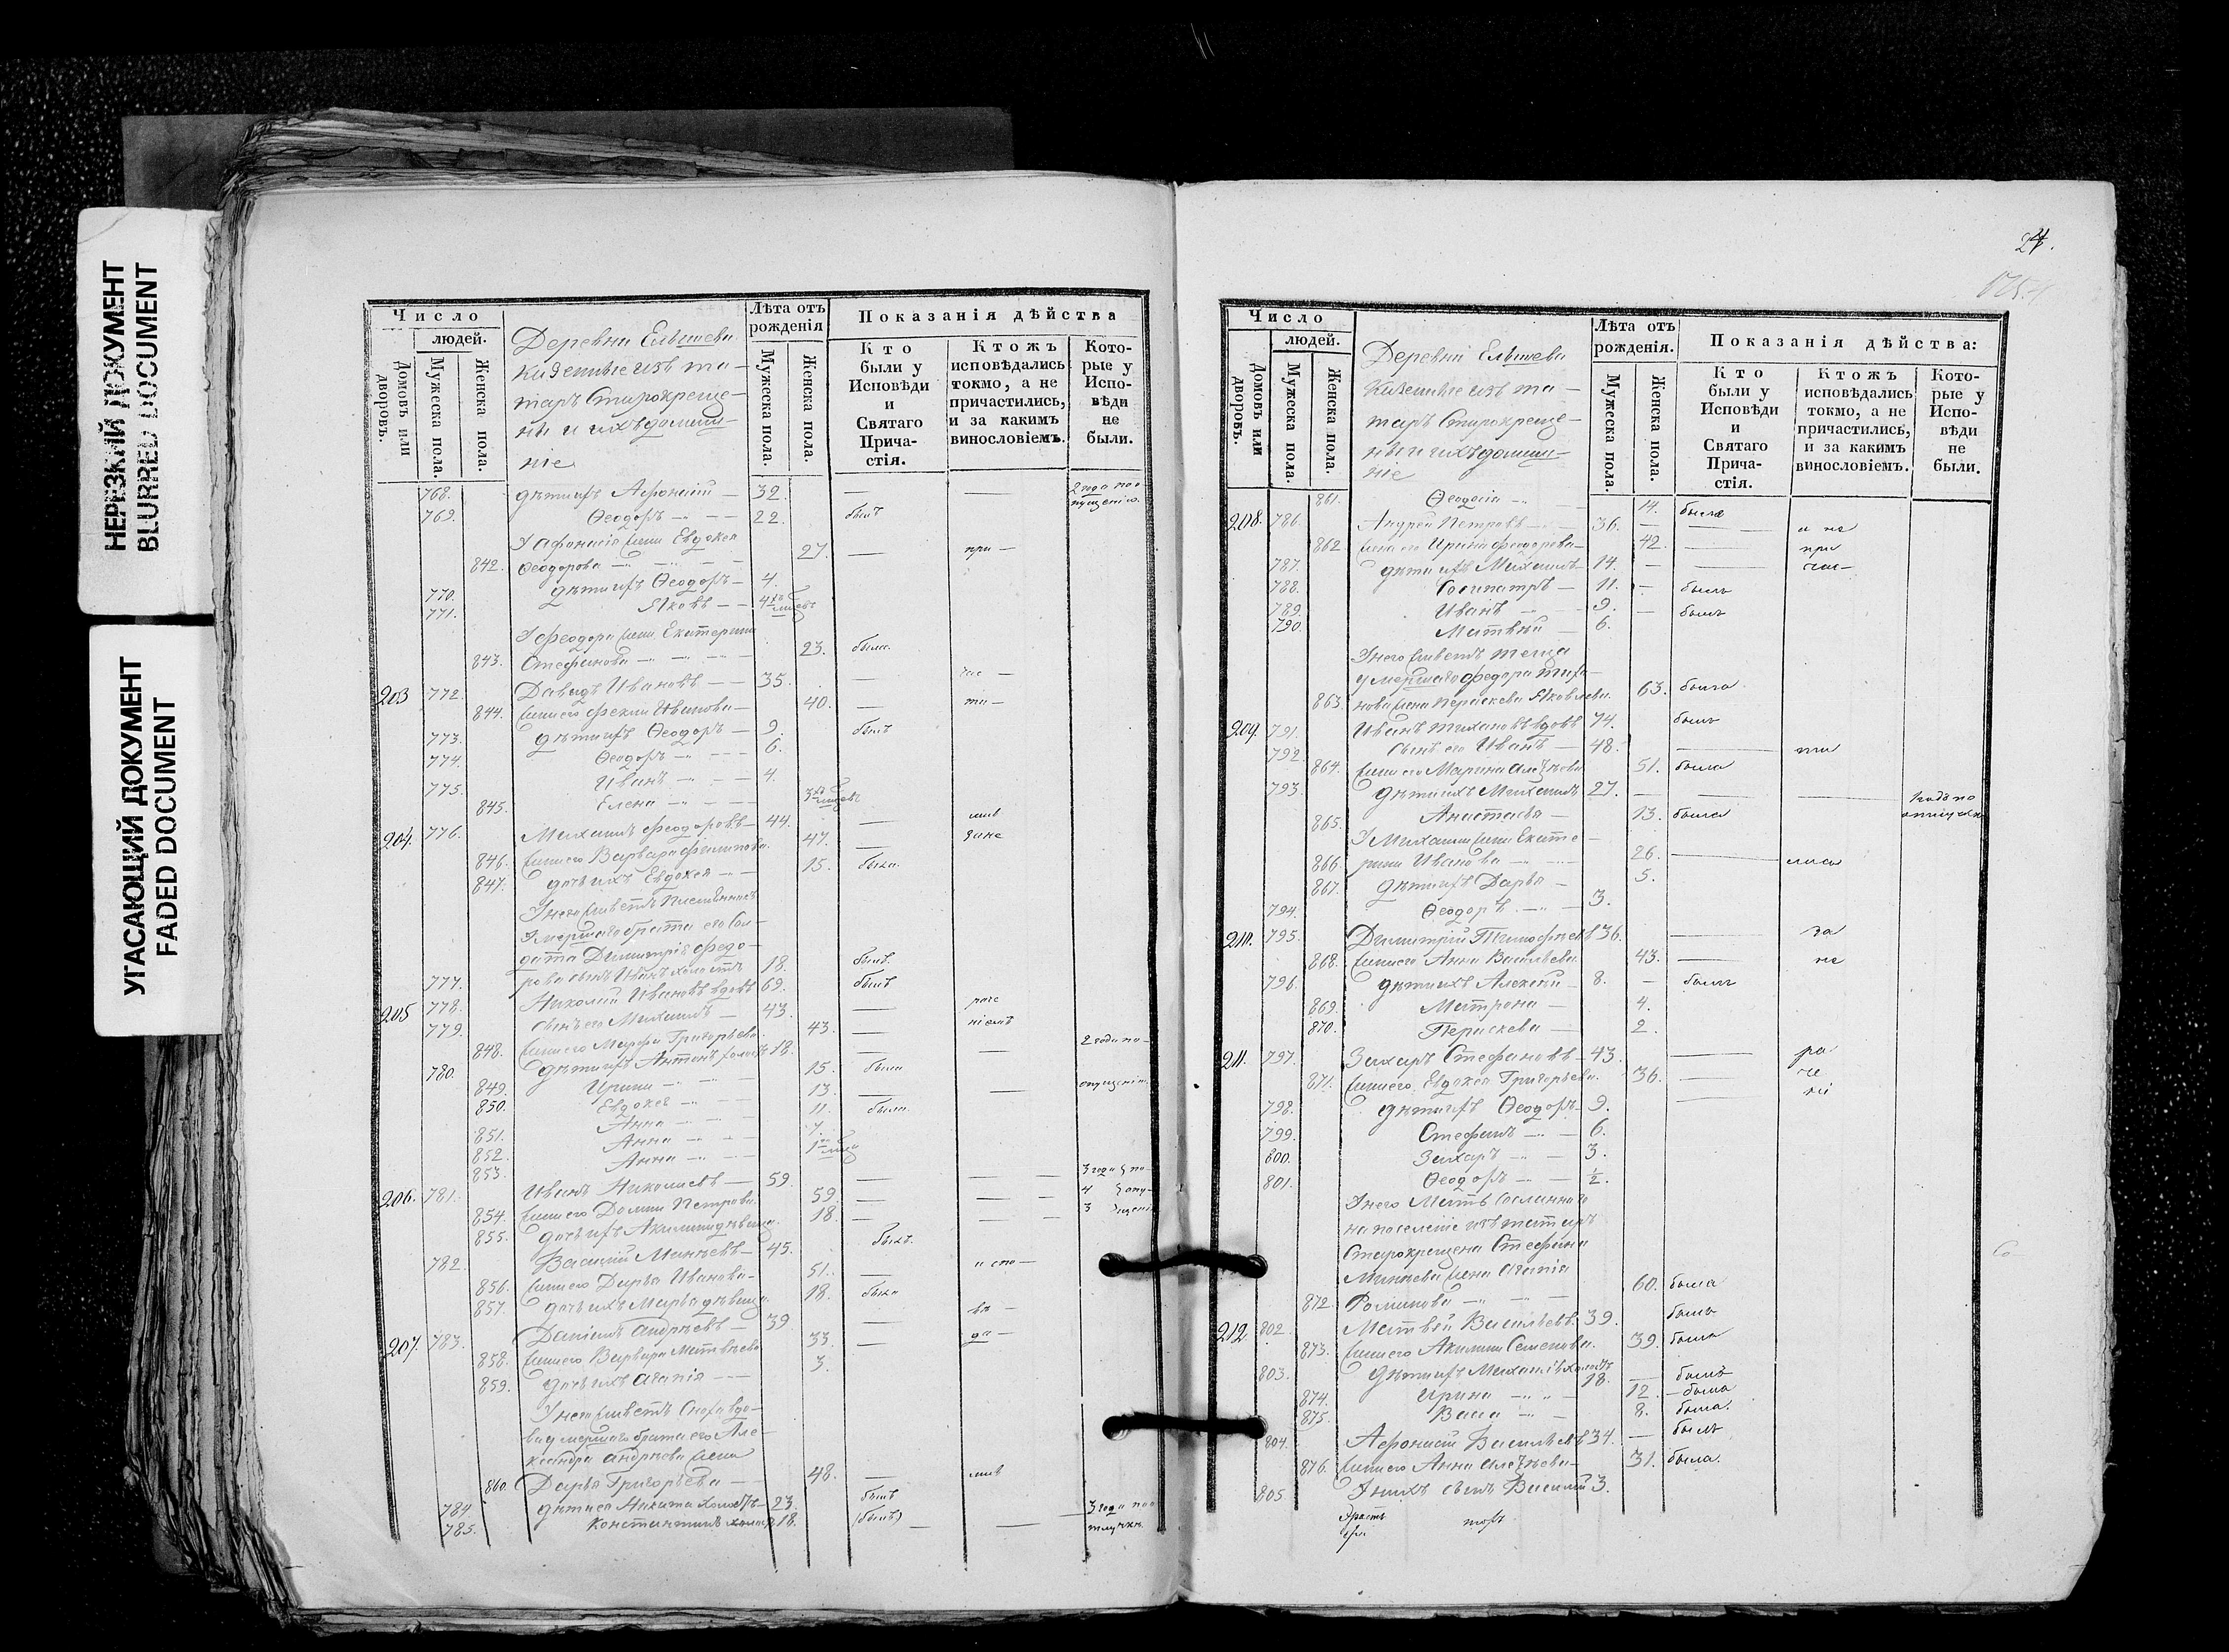 НЕРЕЗКИЙ ДОКУМЕНТ
BLURRED DOCUMENT
УГАСАЮЩИЙ ДОКУМЕНТ
FADED DOCUMENT
Число
людей.
Домовъ или дворовъ.
Мужеска пола.
Женска пола.
Деревни Елышеви
казенные изъ та-
таръ Старокреще-
ны и ихъ домаш-
ніе
Лѣта отъ рожденія
Мужеска пола.
Женска пола.
Показанія дѣйства
Кто были у Исповѣди и Святаго Прича-стія.
Ктожъ исповѣдались токмо, а не причастились, и за какимъ винословіемъ.
Кото-рые у Испо-вѣди не были.
768. дѣти ихъ Афонасій — 32. — — 2 года по о
пущенію.
769. Ѳеодоръ — 22. былъ
У Афонасія жена Евдокея
842. Ѳеодорова — 27. — при —
770. дѣти ихъ Ѳеодоръ — 4.
771. Яковъ — 4
У Феодора жена Екатерина
843. Стефанова — 23. была.
203 772. Давидъ Ивановъ — 35. — час —
844. жена его Фекла Иванова — 40. — та —
773. дѣти ихъ Ѳеодоръ — 9. былъ
774. Ѳеодоръ — 6.
775. Иванъ — 4.
845. Елена — 3
204. 776. Михаилъ Феодоровъ — 44. —
846. жена его Варвара Филипова. 47. —
847. дочь ихъ Евдокея — 15. была.
У него живетъ племянникъ
умершаго брата его Сол-
дата Димитрія Федо-
777. рова сынъ Иванъ холостъ 18. былъ.
205 778. Николай Ивановъ вдовъ 69. былъ
779. сынъ его Михаилъ — 43. —
848. жена его Марфа Григорьева. 43. — ніемъ
780. дѣти ихъ Антонъ холостъ 18. — — 2 года по —
849. Ирина — 15. была
850. Евдокея — 13. — — опущенію.
851. Анна — 11. была.
852. Анна — 7.
853. Анна — 1
206. 781. Иванъ Николаевъ — 59. — — 3 года по —
854. жена его Домна Петрова. 59. — — 4 опу-
855. дочь ихъ Акилина дѣвица. 18. — — 3 щенію
782. Василій Минѣевъ — 45. былъ.
856. жена его Дарья Иванова — 51. —
857. дочь ихъ Марья дѣвица. 18. была
207. 783. Даніилъ Андрѣевъ — 39 —
858. жена его Варвара Матвѣева 33. — да —
859. дочь ихъ Агапія — 3.
У него живетъ Сноха вдо-
ва умершаго брата его Але-
ксандра Андрѣева жена
860. Дарья Григорьева — 48. —
784. дѣти ея Никита холостъ — 23. былъ
785. Константинъ холостъ 18. (былъ) — — 3 года по о
24.
Число
людей.
Домовъ или дворовъ.
Мужеска пола.
Женска пола.
Деревни Елышеви
казенные изъ та-
таръ Старокреще-
ны и ихъ домаш-
ніе
Лѣта отъ рожденія.
Мужеска пола.
Женска пола.
Показанія дѣйства:
Кто были у Исповѣди и Святаго Прича-стія.
Ктожъ исповѣдались токмо, а не причастились, и за какимъ винословіемъ.
Кото-рые у Испо-вѣди не были.
861. Ѳеодосія — 14. была
208. 786. Андрей Петровъ — 36. — — а не
862. жена его Ирина Феодорова — 42. — при
787. дѣти ихъ Михаилъ 14. — — час —
788. Сосипатръ — 11. — былъ
789. Иванъ — 9. — былъ
790. Матвѣй — 6.
У него живетъ теща
умершаго Федора Тиха-
863. нова жена Параскева Яковлева. 63. была
209. 791. Иванъ Тихановъ вдовъ 74. былъ
792. сынъ его Иванъ — 48. — ти
864. жена его Марина Алексѣева 51. была
793. дѣти ихъ Михаилъ 27. — — —
865. Анастасья — 13. была
У Михаила жена Екате-
866. рина Иванова — 26. —
867. дѣти ихъ Дарья — 5.
794. Ѳеодоръ — 3.
210. 795. Димитрій Тимофѣевъ 36. — за
868. жена его Анна Васильева 43. — не
796. дѣти ихъ Алексѣй — 8. — былъ
869. Матрона — 4.
870. Параскева — 2.
211. 797. Захаръ Стефановъ — 43. — ра
871. жена его Евдокея Григорьева. 36. — че
798. дѣти ихъ Ѳеодоръ — 9. — ні
799. Стефанъ — 6.
800. Захаръ — 3.
801. Ѳеодоръ — ½.
У него Мать Сосланнаго
на поселеніе изъ татаръ
Старокрещена Стефана
Минѣева жена Агапія
872. Романова — 60. была
212 802. Матвѣй Васильевъ. 39. былъ
873. жена его Акилина Семенова. 39. была
803. дѣти ихъ Михаилъ холостъ 18. — былъ
874. Ирина — 12. — была
875. Васса — 8. была.
804. Афонасій Васильевъ 34. — былъ
876. жена его Анна Алексѣева — 31. была.
805. У нихъ сынъ Василій 3.